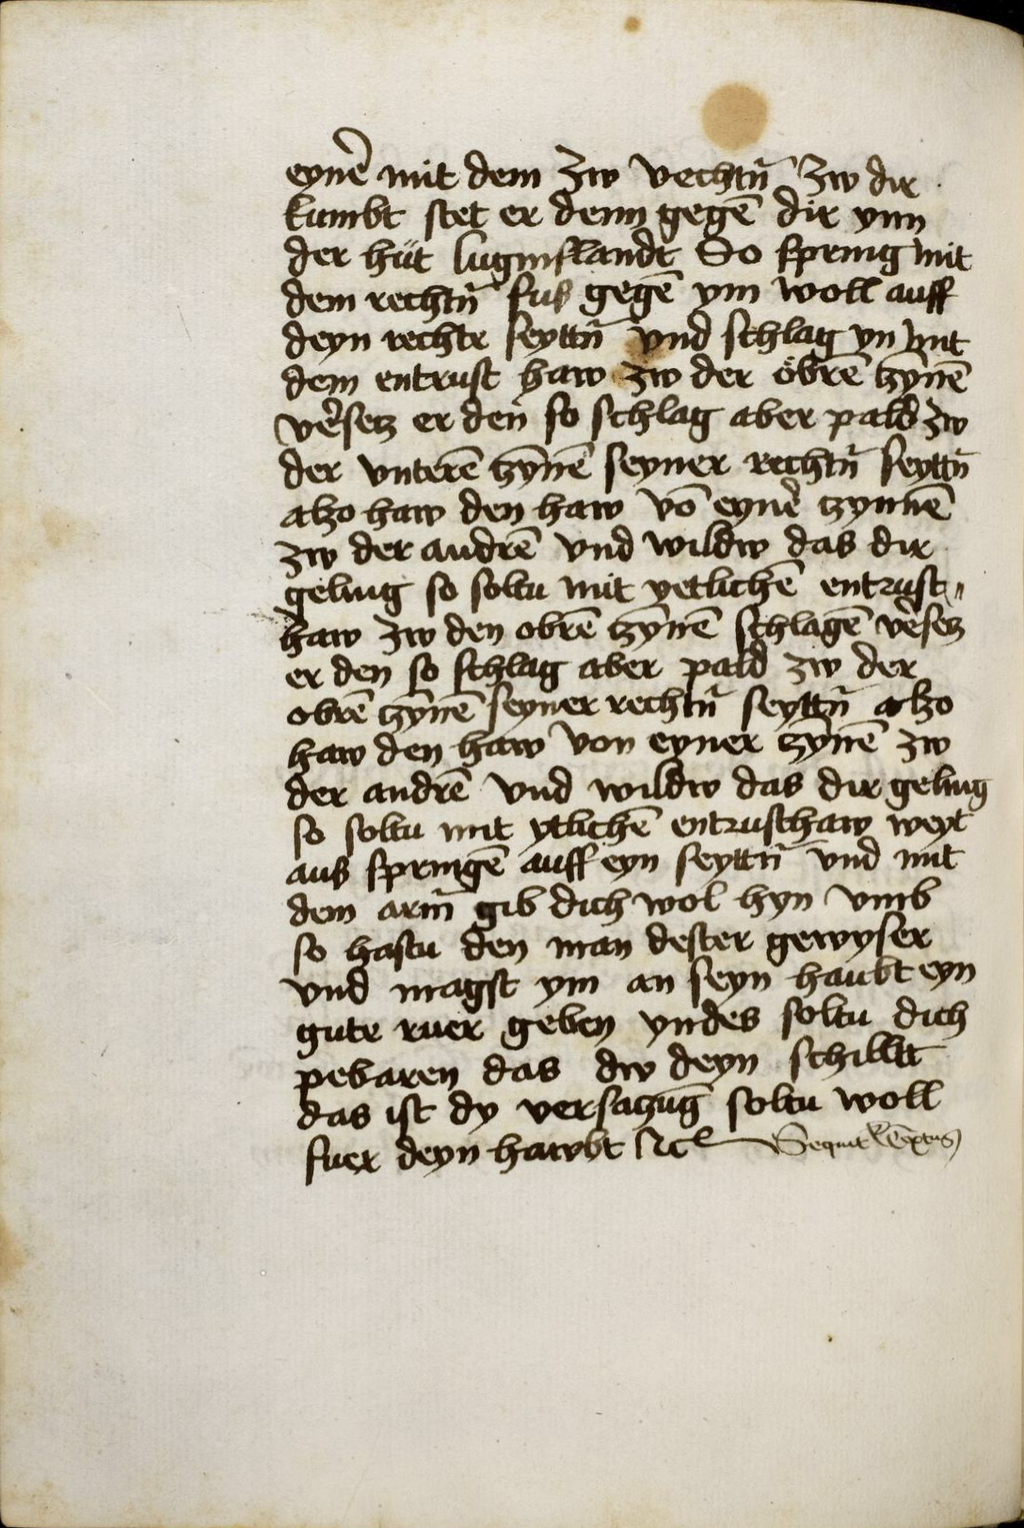 eynẽ mit dem zw vechtñ zw dir
kumbt stet er denn gegẽ dir ynn
der hüt luginslandt So spring mit
dem rechtñ fus gegẽ ym woll auff
deyn rechte seyttñ vnd schlag yn mit
dem entrust haw zw der öbrẽ tzynẽ
vẽsetz er deñ so schlag aber pald zw
der vnterẽ tzynẽ seyner rechtñ seyttñ
alzo haw den haw võ eynẽ tzynnẽ
zw der andrẽ vnd wildw das dir
geling so soltu mit yetlichẽ entrust„
haw zw den obrẽ tzynẽ schlagẽ vẽsetz
er den so schlag aber pald zw der
obrẽ tzynẽ seyner rechtñ seyttñ alzo
haw den haw von eyner tzynẽ zw
der andrẽ vnd wildw das dir geling
so soltu mit ytlichẽ entrusthaw weyt
aus springẽ auff eyn seyttñ vnd mit
dem arm̃ gib dich wol hyn vmb
so hastu den man dester gewyser
vnd magst ym an seyn haubt eyn
gute ruer geben yndes soltu dich
pebaren das dw deyn schilltt
das ist dy versatzũg soltu woll
fuer deyn hawbt Sequit Textus